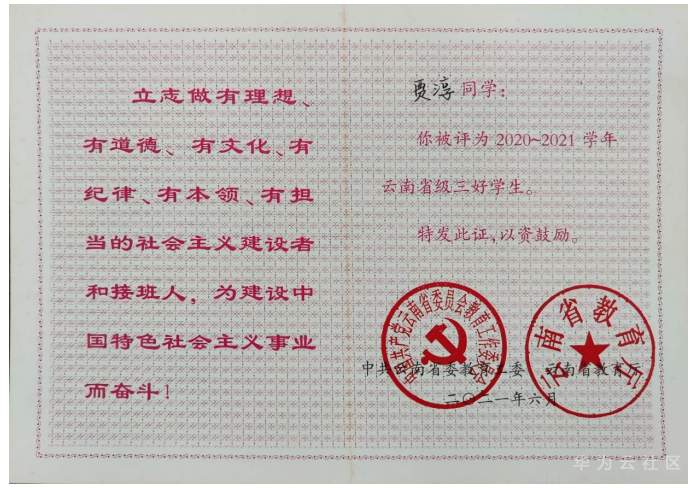 立志做有理想、
有道德、有文化、有
纪律、有本领、有担
当的社会主义建设者
和接班人，为建设中
国特色社会主义事业
而奋斗！
贾淳同学：
你被评为2020~2021学年
云南省级三好学生。
特发此证，以资鼓励。
中国共产党云南省委员会教育工作委员会
云南省教育厅
中共云南省委教育工委 云南省教育厅
二〇二一年六月
华为云社区